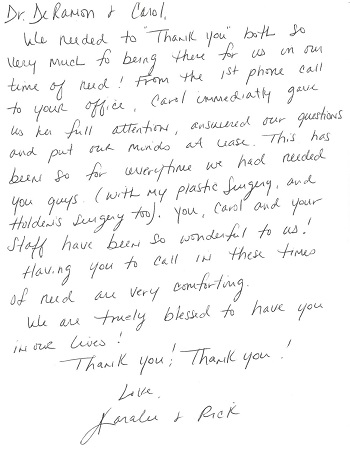 Dr. DeRamon & Carol,
We needed to "Thank you" both so
very much fo being there for us in our
time of need! From the 1st phone call
to your office, Carol immediatly gave
us her full attention, answered our questions
and put our minds at ease. This has
been so for everytime we had needed
you guys. (with my plastic surgery, and
Holden's surgery too). You, Carol and your
Staff have been so wonderful to us!
Having you to call in these times
of need are very comforting.
We are truely blessed to have you
in our lives!
Thank you! Thank you!
Love,
& Rick